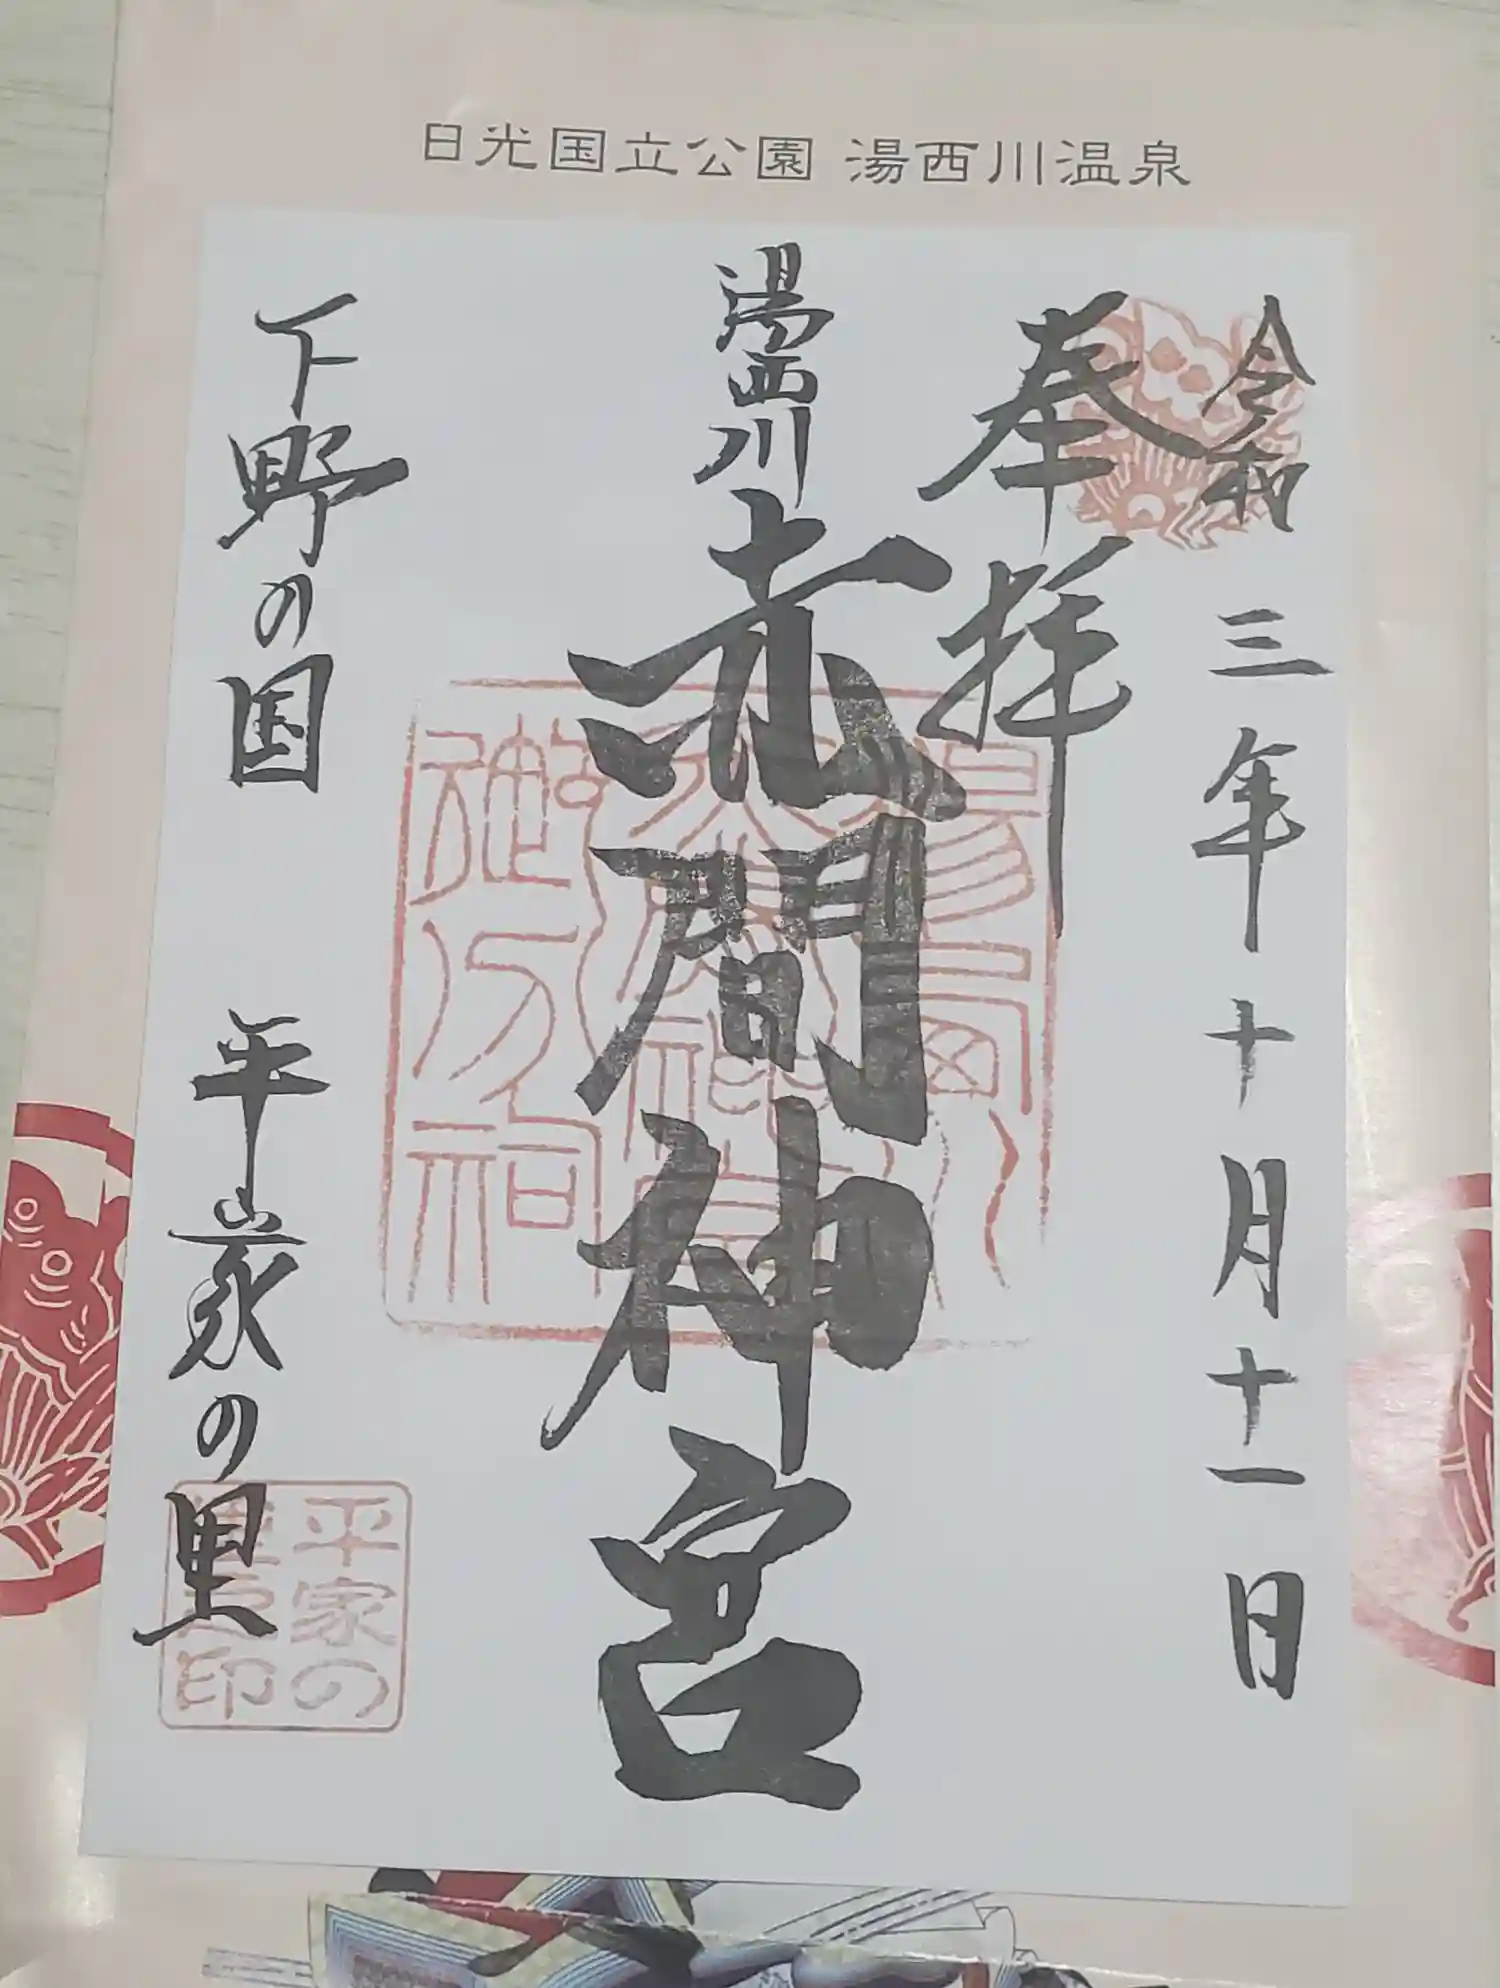 日光国立公園 湯西川温泉
令和三年十月十一日
奉拝
湯西川
赤間神宮
下野の国 平家の里
平家の
印